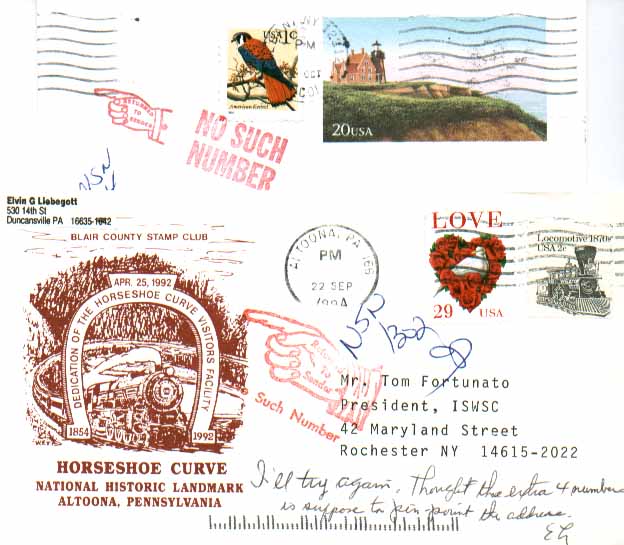 USA 1c
American Kestrel
PM
OCT
20USA
RETURNED
TO
SENDER
NO SUCH
NUMBER
NSN
Elvin G Liebegott
530 14th St
Duncansville PA 16635-1642
BLAIR COUNTY STAMP CLUB
APR. 25, 1992
DEDICATION OF THE HORSESHOE CURVE VISITORS FACILITY
1854 1992
HORSESHOE CURVE
NATIONAL HISTORIC LANDMARK
ALTOONA, PENNSYLVANIA
ALTOONA, PA 166
PM
22 SEP
1994
LOVE
29 USA
Locomotive 1870s
USA 2c
NSN
Returned
To
Sender
Such Number
Mr. Tom Fortunato
President, ISWSC
42 Maryland Street
Rochester NY 14615-2022
I'll try again. Thought the extra 4 numbers
is suppose to pin point the address.
EL